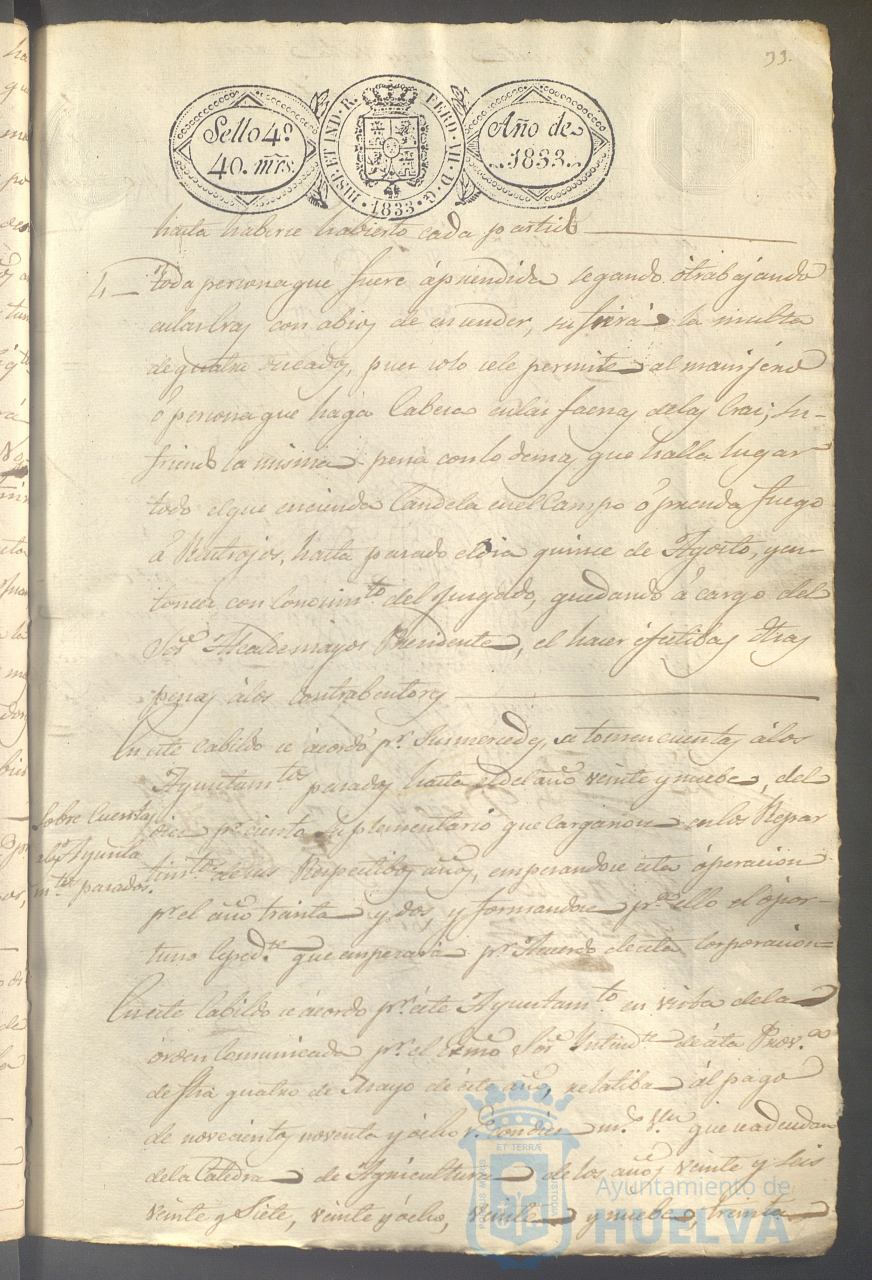 33.
Sello 4º
40. mrs.
HISP. ET IND. R. FERD. VII. D. G. 1833.
Año de
1833.
hasta haberse habierto cada partib
4 Toda persona que fuere áprendida segando ó trabajando
en las Eras con abios de encender, sufrirá la multa
de quatro ducados, pues solo se le permite al manijero
ó persona que haga Cabeza en las faenas de las Eras; su-
friendo la misma pena con lo demas que halla lugar
todo el que encienda Candela en el Campo ó prenda fuego
á Rastrojos, hasta pasado el dia quince de Agosto, y en-
tonces con Conocimto del Juzgado, quedando á cargo del
Sor Alcalde mayor Presidente, el hacer éfectibas dhas
penas á los contrabentores
En este Cabildo se ácordó pr. Sus mercedes, se tomen cuentas á los
Ayuntamtos pasados hasta el del año veinte y nuebe, del
diez pr. ciento suplementario que cargaron en los Repar
Sobre Cuentas
a los Ayunta
mtos pasados.
timtos de sus Respectibos años, empezandose esta óperacion
pr. el año treinta y dos, y formandose pa. ello el ópor-
tuno Espedte. que empezará pr. Acuerdo de esta Corporacion=
En este Cabildo se ácordo pr. éste Ayuntamto en vista de la
órden Comunicada pr. el Exmo Sor. Intendte de ésta Prova
de fha quatro de Mayo de éste año, relatiba ál pago
de novecientos noventa y ócho rs. con diez ms. vn que se adeudan
de la Catedra de Agricultura de los años veinte y seis
veinte y Siete, veinte y ócho, veinte y nuebe, treinta
Ayuntamiento de
HUELVA